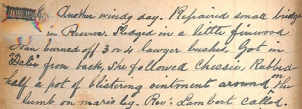 Another windy day. Repaired small bridge
in Reserve. Lodged in a little firewood
burned off 3 or 4 lawyer bushes. Got in
from back, she followed Chessie, Rubbed
half a pot of blistering ointment around the
lump on mare's leg. Rev: Lambert called.